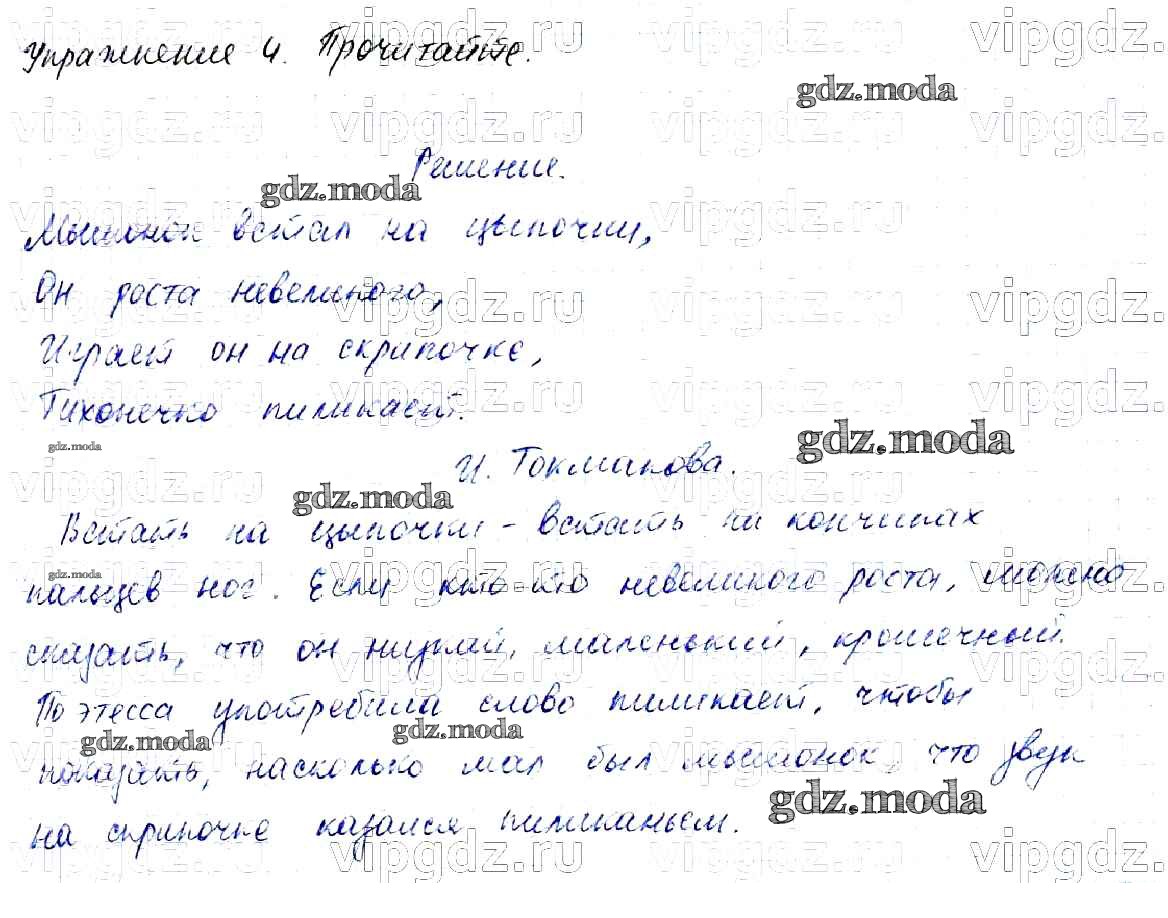 Упражнение 4. Прочитайте.
Решение.
Мышонок встал на цыпочки,
Он роста невеликого,
Играет он на скрипочке,
Тихонечко пиликает.
И. Токмакова.
Встать на цыпочки - встать на кончиках
пальцев ног. Если кто-то невеликого роста, можно
сказать, что он низкий, маленький, крошечный.
Поэтесса употребила слово пиликает, чтобы
показать, насколько мал был мышонок, что звук
на скрипочке казался пиликаньем.
gdz.moda
vipgdz.ru